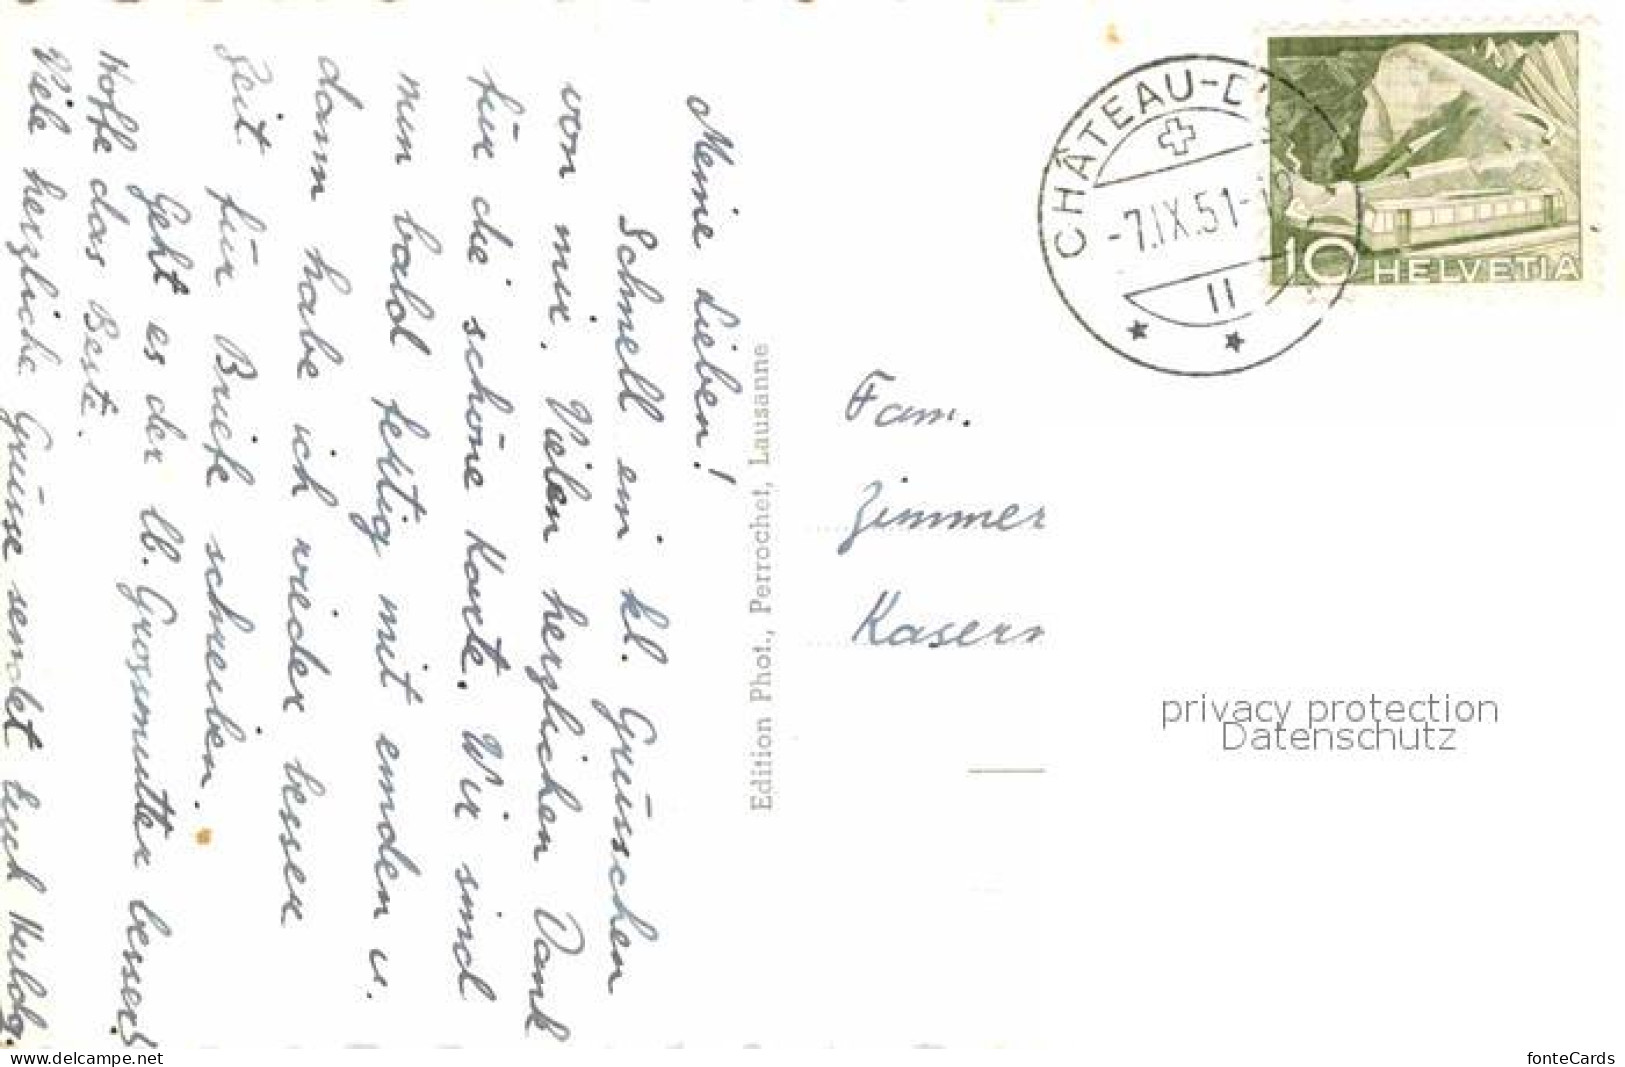 Meine Lieben!
Schnell ein kl. Grüsschen
von mir. Vielen herzlichen Dank
für die schöne Karte. Wir sind
nun bald fertig mit emden u.
dann habe ich wieder besser
Zeit für Briefe schreiben.
Geht es der lb. Grossmutter besser?
Hoffe das Beste.
Viele herzliche Grüsse sendet Euch Huldy.
Edition Phot., Perrochet, Lausanne
CHÂTEAU-D'
-7.IX.51-
11
10 HELVETIA
Fam.
Zimmer
Kasern
privacy protection
Datenschutz
www.delcampe.net
fonteCards